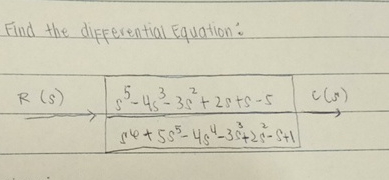 Find the differential Equation:
R(s) s⁵-4s³-3s²+2s+s-5 C(s)
s⁶+5s⁵-4s⁴-3s³+2s²-s+1